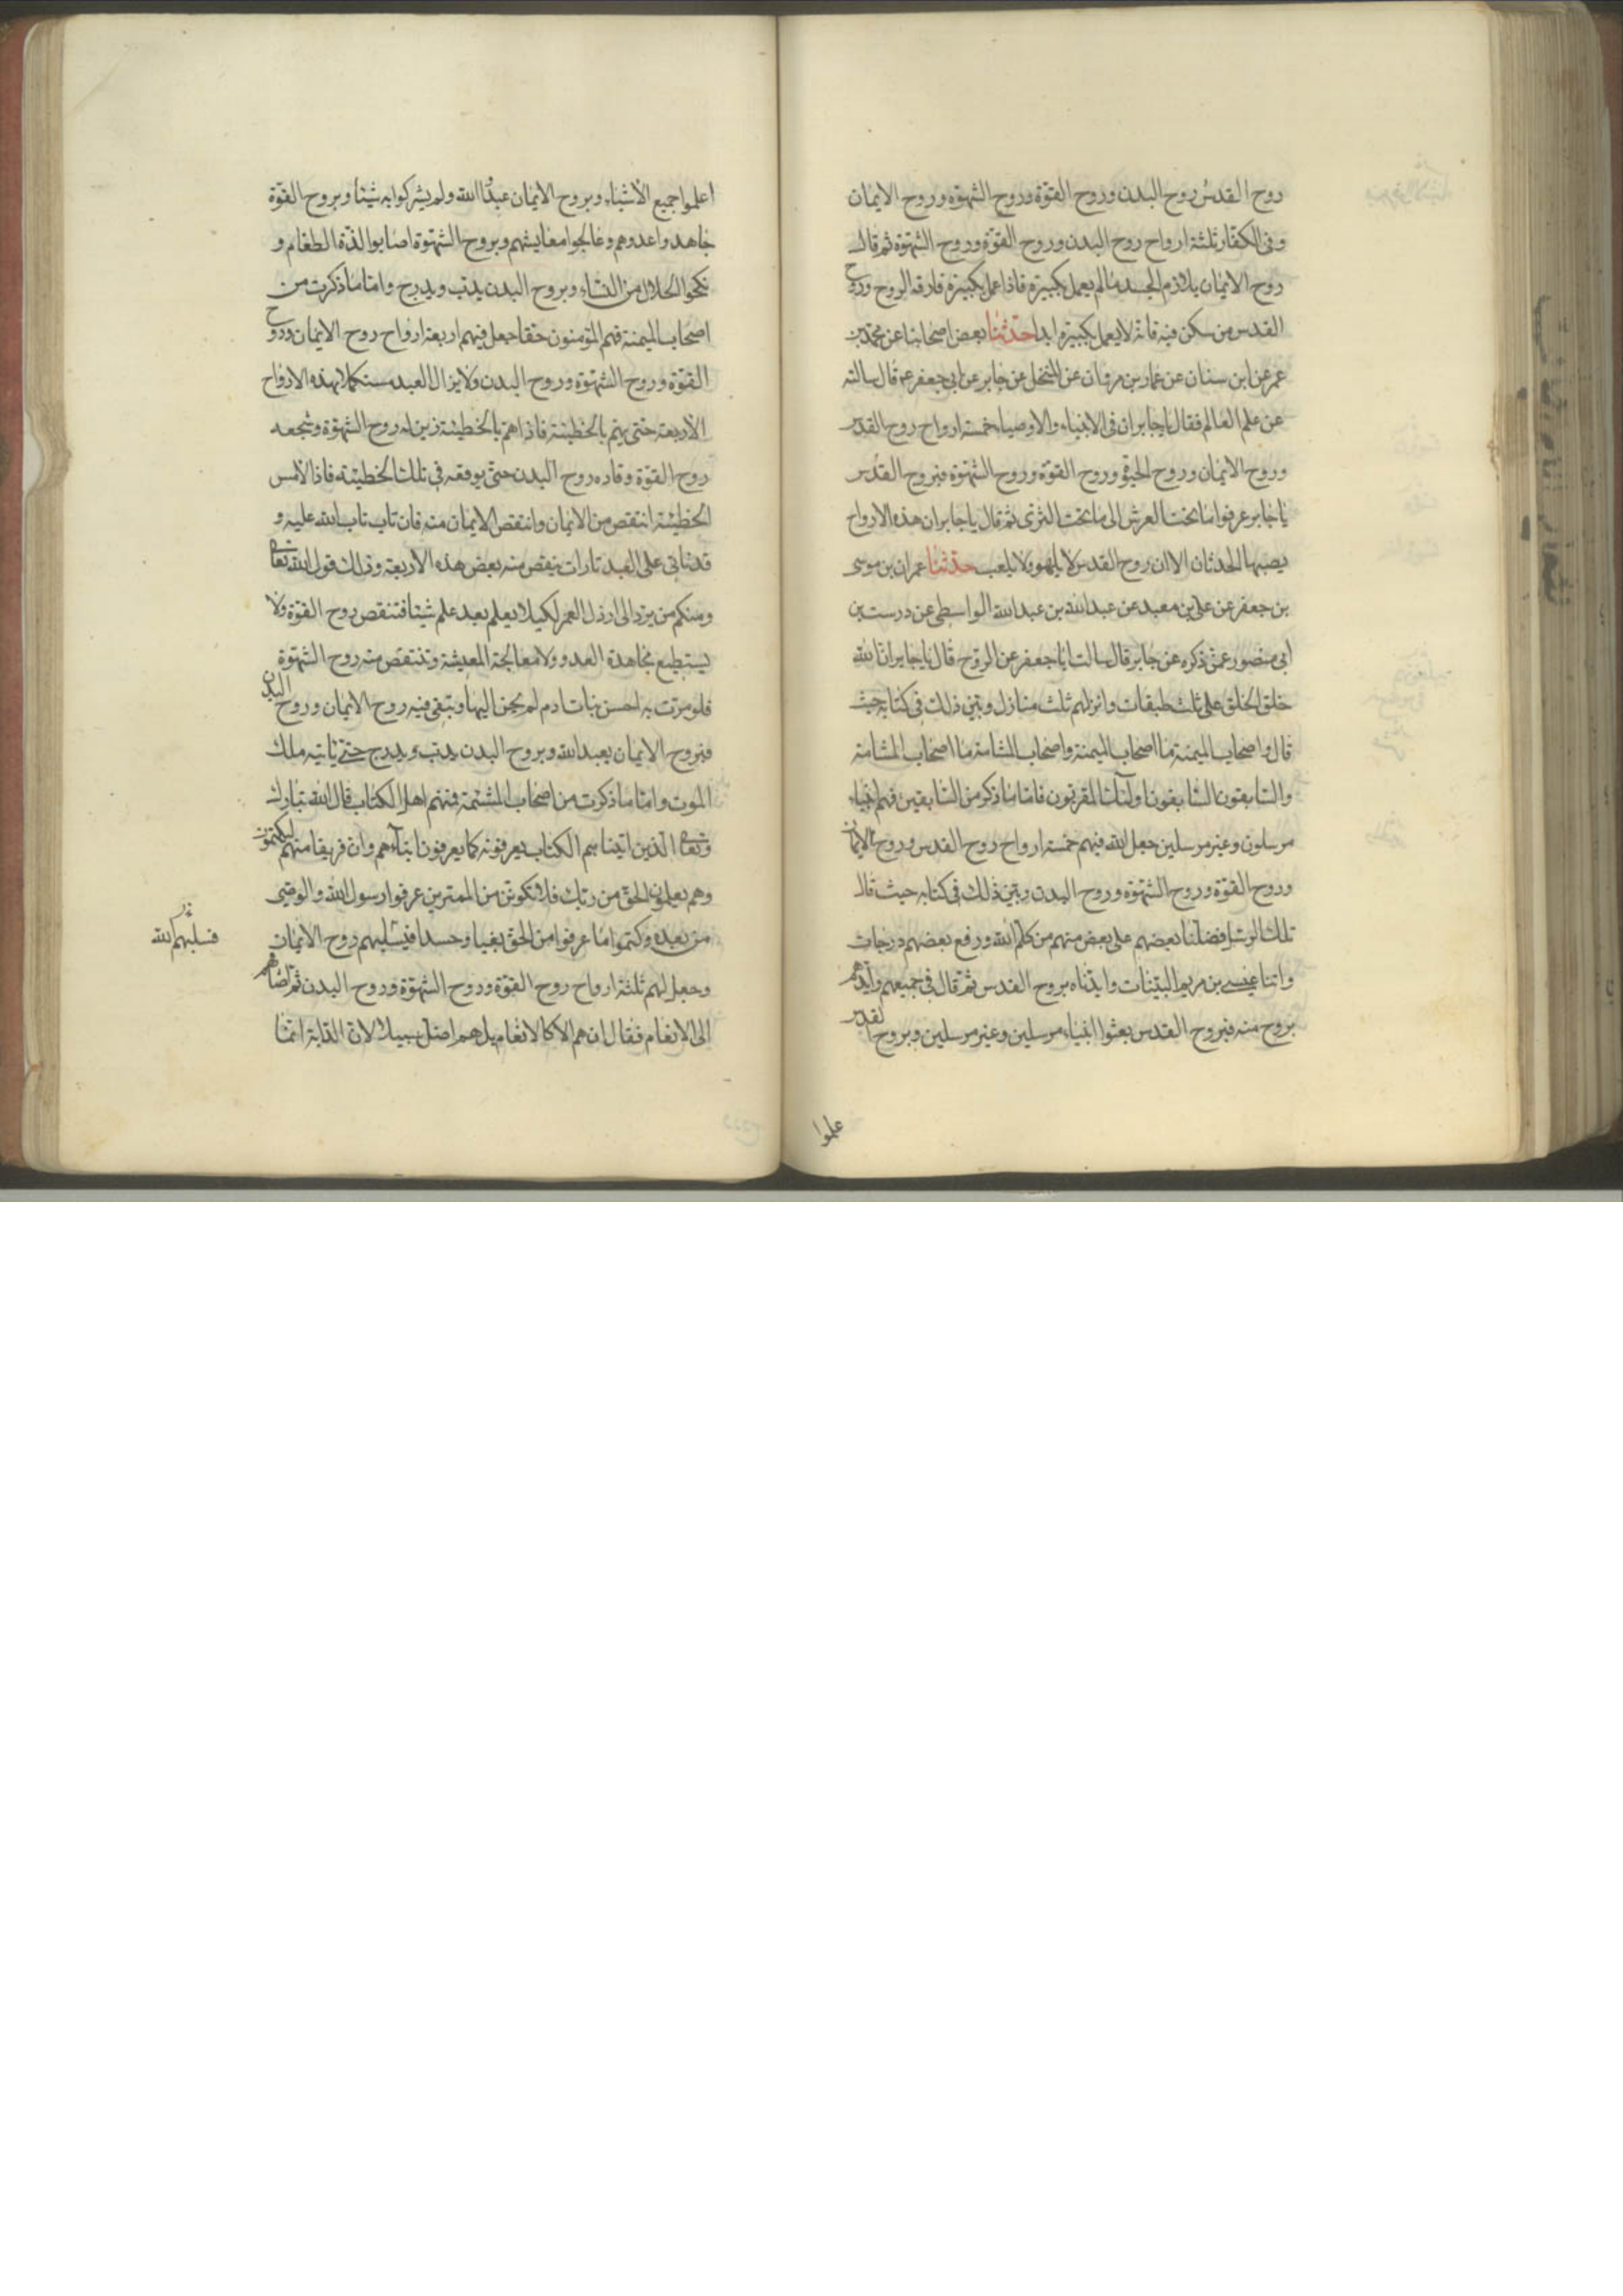 روح القدس روح البدن وروح القوّة وروح الشهوة وروح الايمان
وفى الكفّار ثلثة ارواح روح البدن وروح القوّة وروح الشهوة ثم قال
روح الايمان يلازم الجسد ما لم يعمل بكبيرة فاذا عمل بكبيرة فارقه الروح وروح
القدس من سكن فيه فانّه لا يعمل بكبيرة ابدا حدّثنا بعض اصحابنا عن محمّد بن
عمر عن ابن سنان عن عمار بن مروان عن المنخل عن جابر عن ابى جعفر ع قال سالته
عن علم العالم فقال يا جابر ان فى الانبياء والاوصياء خمسة ارواح روح القدس
وروح الايمان وروح الحيوة وروح القوّة وروح الشهوة فبروح القدس
يا جابر عرفوا ما تحت العرش الى ما تحت الثرى ثم قال يا جابر ان هذه الارواح
يصيبها الحدثان الا ان روح القدس لا يلهو ولا يلعب حدّثنا عمران بن موسى
بن جعفر عن على بن معبد عن عبد الله بن عبد الله الواسطى عن درست بن
ابى منصور عمّن ذكره عن جابر قال سالت ابا جعفر عن الروح قال يا جابر انّ الله
خلق الخلق على ثلث طبقات وانزلهم ثلث منازل وبيّن ذلك فى كتابه حيث
قال واصحاب الميمنة ما اصحاب الميمنة واصحاب المشامة ما اصحاب المشامة
والسّابقون السّابقون اولٰئك المقربون فامّا ما ذكر من السّابقين فهم انبياء
مرسلون وغير مرسلين جعل الله فيهم خمسة ارواح روح القدس وروح الايمان
وروح القوّة وروح الشهوة وروح البدن وبيّن ذلك فى كتابه حيث قال
تلك الرسل فضلنا بعضهم على بعض منهم من كلّم الله ورفع بعضهم درجات
واتينا عيسى بن مريم البيّنات وايدناه بروح القدس ثم قال فى جميعهم وايّدهم
بروح منه فبروح القدس بعثوا انبياء مرسلين وغير مرسلين وبروح القدس
علموا
اعلموا جميع الأشياء وبروح الايمان عبدوا الله ولم يشركوا به شيئا وبروح القوّة
جاهدوا عدوهم وعالجوا معايشهم وبروح الشهوة اصابوا لذّة الطعام و
نكحوا الحلال من النساء وبروح البدن يدبّ ويدرج وامّا ما ذكرت من
اصحاب الميمنة فهم المؤمنون حقا جعل فيهم اربعة ارواح روح الايمان وروح
القوّة وروح الشهوة وروح البدن ولا يزال العبد مستكملا بهذه الارواح
الأربعة حتى يهتم بالخطيئة فاذا هم بالخطيئة زين له روح الشهوة وشجعه
روح القوّة وقاده روح البدن حتى يوقعه فى تلك الخطيئة فاذا لامس
الخطيئة انتقص من الايمان وانتقص الايمان منه فان تاب تاب الله عليه و
قد تاتى على العبد تارات ينقص منه بعض هذه الاربعة وذلك قول الله تعالى
ومنكم من يرد الى ارذل العمر لكيلا يعلم بعد علم شيئا فتنقص روح القوّة ولا
يستطيع مجاهدة العدو ولا معالجة المعيشة وتنتقص منه روح الشهوة
فلو مرّت به احسن بنات ادم لم يحن اليها وتبقى فيه روح الايمان وروح البدن
فبروح الايمان يعبد الله وبروح البدن يدبّ ويدرج حتى ياتيه ملك
الموت وامّا ما ذكرت من اصحاب المشئمة فمنهم اهل الكتاب قال الله تبارك
وتعالى الّذين اتيناهم الكتاب يعرفونه كما يعرفون ابناءهم وان فريقا منهم ليكتمون
وهم يعلمون الحق من ربّك فلا تكوننّ من الممترين عرفوا رسول الله والوصى
من بعده وكتموا ما عرفوا من الحق بغيا وحسدا فيسلبهم روح الايمان
فسلبهم الله
وجعل لهم ثلثة ارواح روح القوّة وروح الشهوة وروح البدن ثم اضافهم
الى الانعام فقال ان هم الا كالانعام بل هم اضل سبيلا لان الدّابة انّما